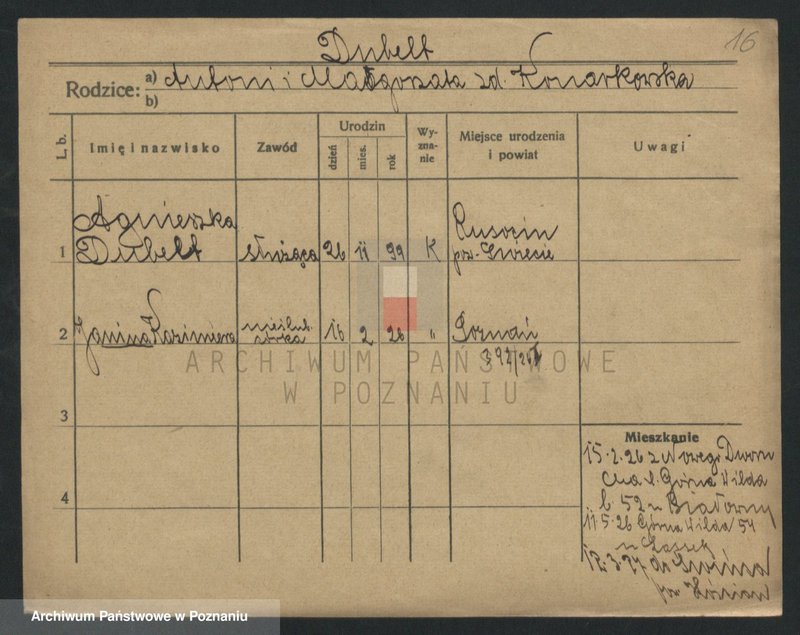 16
Dubelt
Rodzice: a) Antoni i Małgorzata zd. Konarkowska
b)
L. b.
Imię i nazwisko
Zawód
Urodzin
dzień
mies.
rok
Wy-
zna-
nie
Miejsce urodzenia
i powiat
Uwagi
1 Agnieszka
Dubelt służąca 26 11 99 K
pow. Świecie
2 Janina Kazimiera nieślub. córka 16 2 26 " Poznań
392/26
ARCHIWUM PAŃSTWOWE
W POZNANIU
3
4
Mieszkanie
15.2.26 z Nowego Dworu
Górna Wilda
l. 52 u
11.5.26 Górna Wilda 54
u
12.3.27 do
pow.
Archiwum Państwowe w Poznaniu